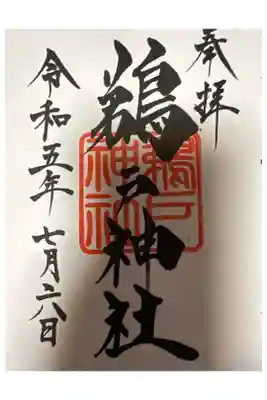 奉拝
鵜戸神社
鵜戸
神社
令和五年七月六日